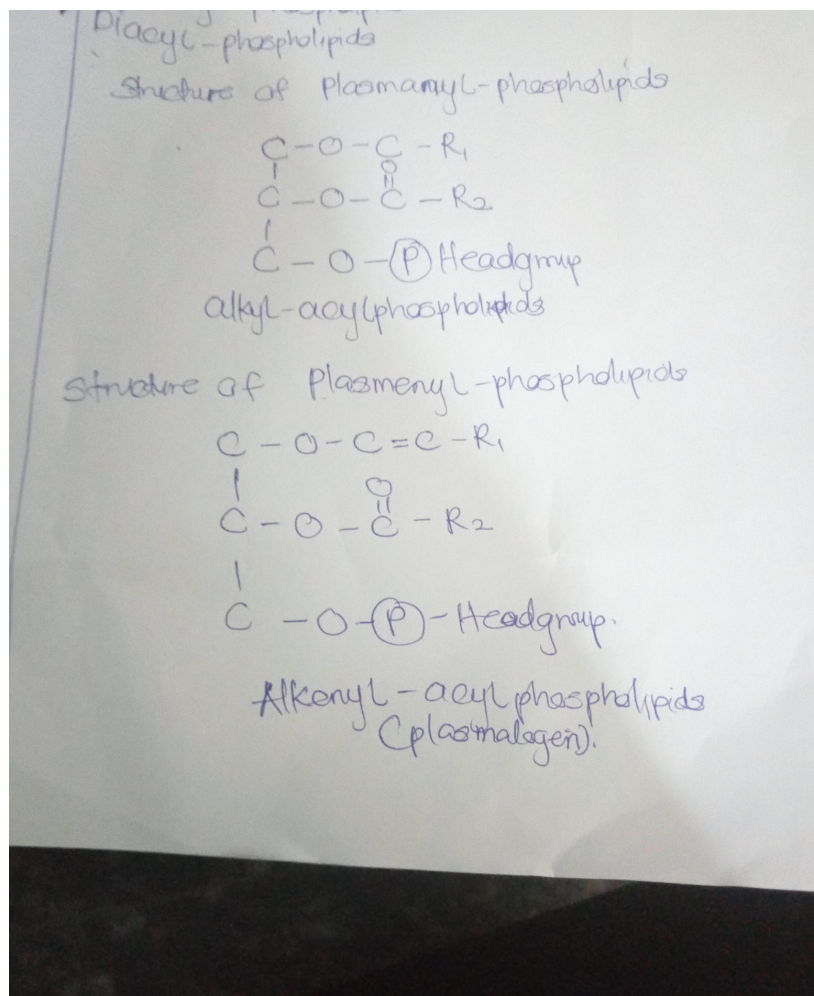 Diacyl-phospholipids
Structure of Plasmanyl-phospholipids
C-O-C-R1
C-O-C-R2
O
C-O-P Headgroup
alkyl-acylphospholipids
Structure of Plasmenyl-phospholipids
C-O-C=C-R1
O
C-O-C-R2
C-O-P-Headgroup.
Alkenyl-acylphospholipids
(plasmalogen).